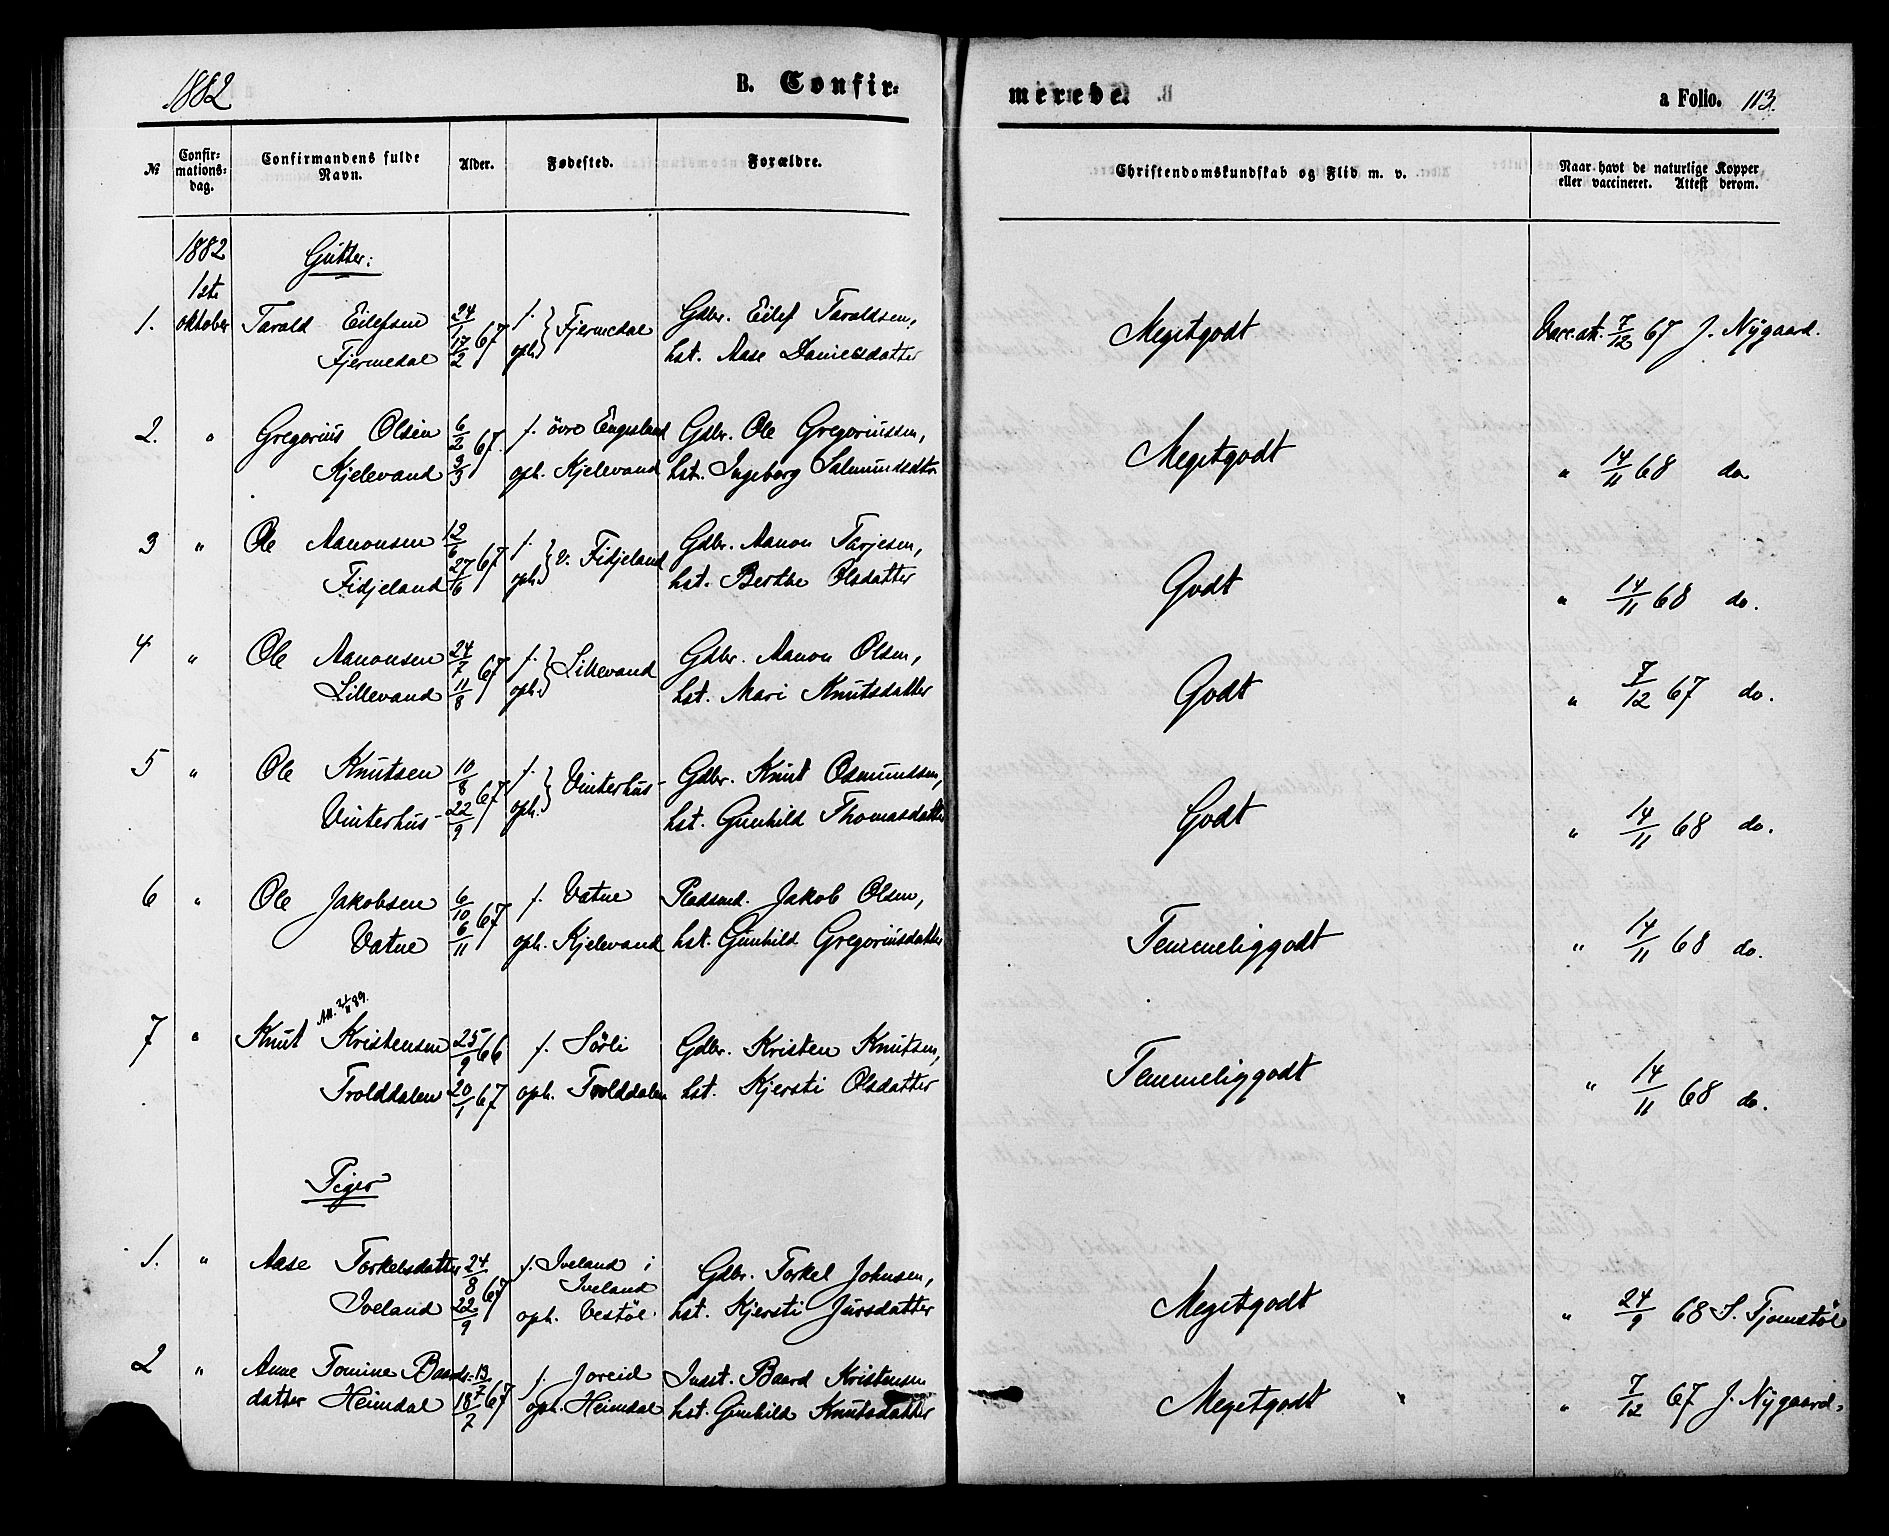 1882
B. Confir-
merede.
a Folio. 113.
№
Confir-
mations-
dag.
Confirmandens fulde
Navn.
Alder.
Fødested.
Forældre.
Christendomskundskab og Flid m. v.
Naar havt de naturlige Kopper
eller vaccineret. Attest derom.
1882
1ste
oktober
Gutter:
1. Tarald Eilefsen 24/1 67 f. Fjermedal Gdbr. Eilef Taraldsen, Megetgodt Vacc. att. 7/12 67 J. Nygaard.
Fjermedal 17/2 oph. hst. Aase Danielsdatter
2. " Gregorius Olsen 6/2 67 f. övre Engesland Gdbr. Ole Gregoriussen, Megetgodt " 14/11 68 do
Kjelevand 3/3 oph. Kjelevand hst. Ingeborg Salmundsdtr
3 " Ole Aanonsen 12/6 67 f. v. Fidjeland Gdbr. Aanon Tarjesen, Godt " 14/11 68 do.
Fidjeland 27/6 oph. hst. Berthe Olsdatter
4 " Ole Aanonsen 24/7 67 f. Lillevand Gdbr. Aanon Olsen, Godt " 7/12 67 do.
Lillevand 11/8 oph. hst. Mari Knutsdatter
5 " Ole Knutsen 10/8 67 f. Vinterhus Gdbr. Knut Osmundsen, Godt " 14/11 68 do.
Vinterhus 22/9 oph. hst. Gunhild Thomasdatter
6 " Ole Jakobsen 6/10 67 f. Vatne Pladsmd. Jakob Olsen, Temmeliggodt " 14/11 68 do.
Vatne 6/11 oph. Kjelevand hst. Gunhild Gregoriusdatter
Att. 89.
7 " Knut Kristensen 25/9 66 f. Sörli Gdbr. Kristen Knutsen, Temmeliggodt " 14/11 68 do.
Trolddalen 20/1 67 oph. Trolddalen hst. Kjersti Olsdatter
Piger
1. " Aase Torkelsdatter 24/8 67 f. Iveland i Gdbr. Torkel Johnsen, Megetgodt " 24/9 68 S. Tjomstöl
Iveland
Iveland 22/9 oph. Vestöl. hst. Kjersti Jursdatter
2 " Anne Tomine Baards- 13/7 67 f. Joreid Indst. Baard Kristensen Megetgodt " 7/12 67 J. Nygaard.
datter Heimdal 18/7 oph. Heimdal hst. Gunhild Knutsdatter